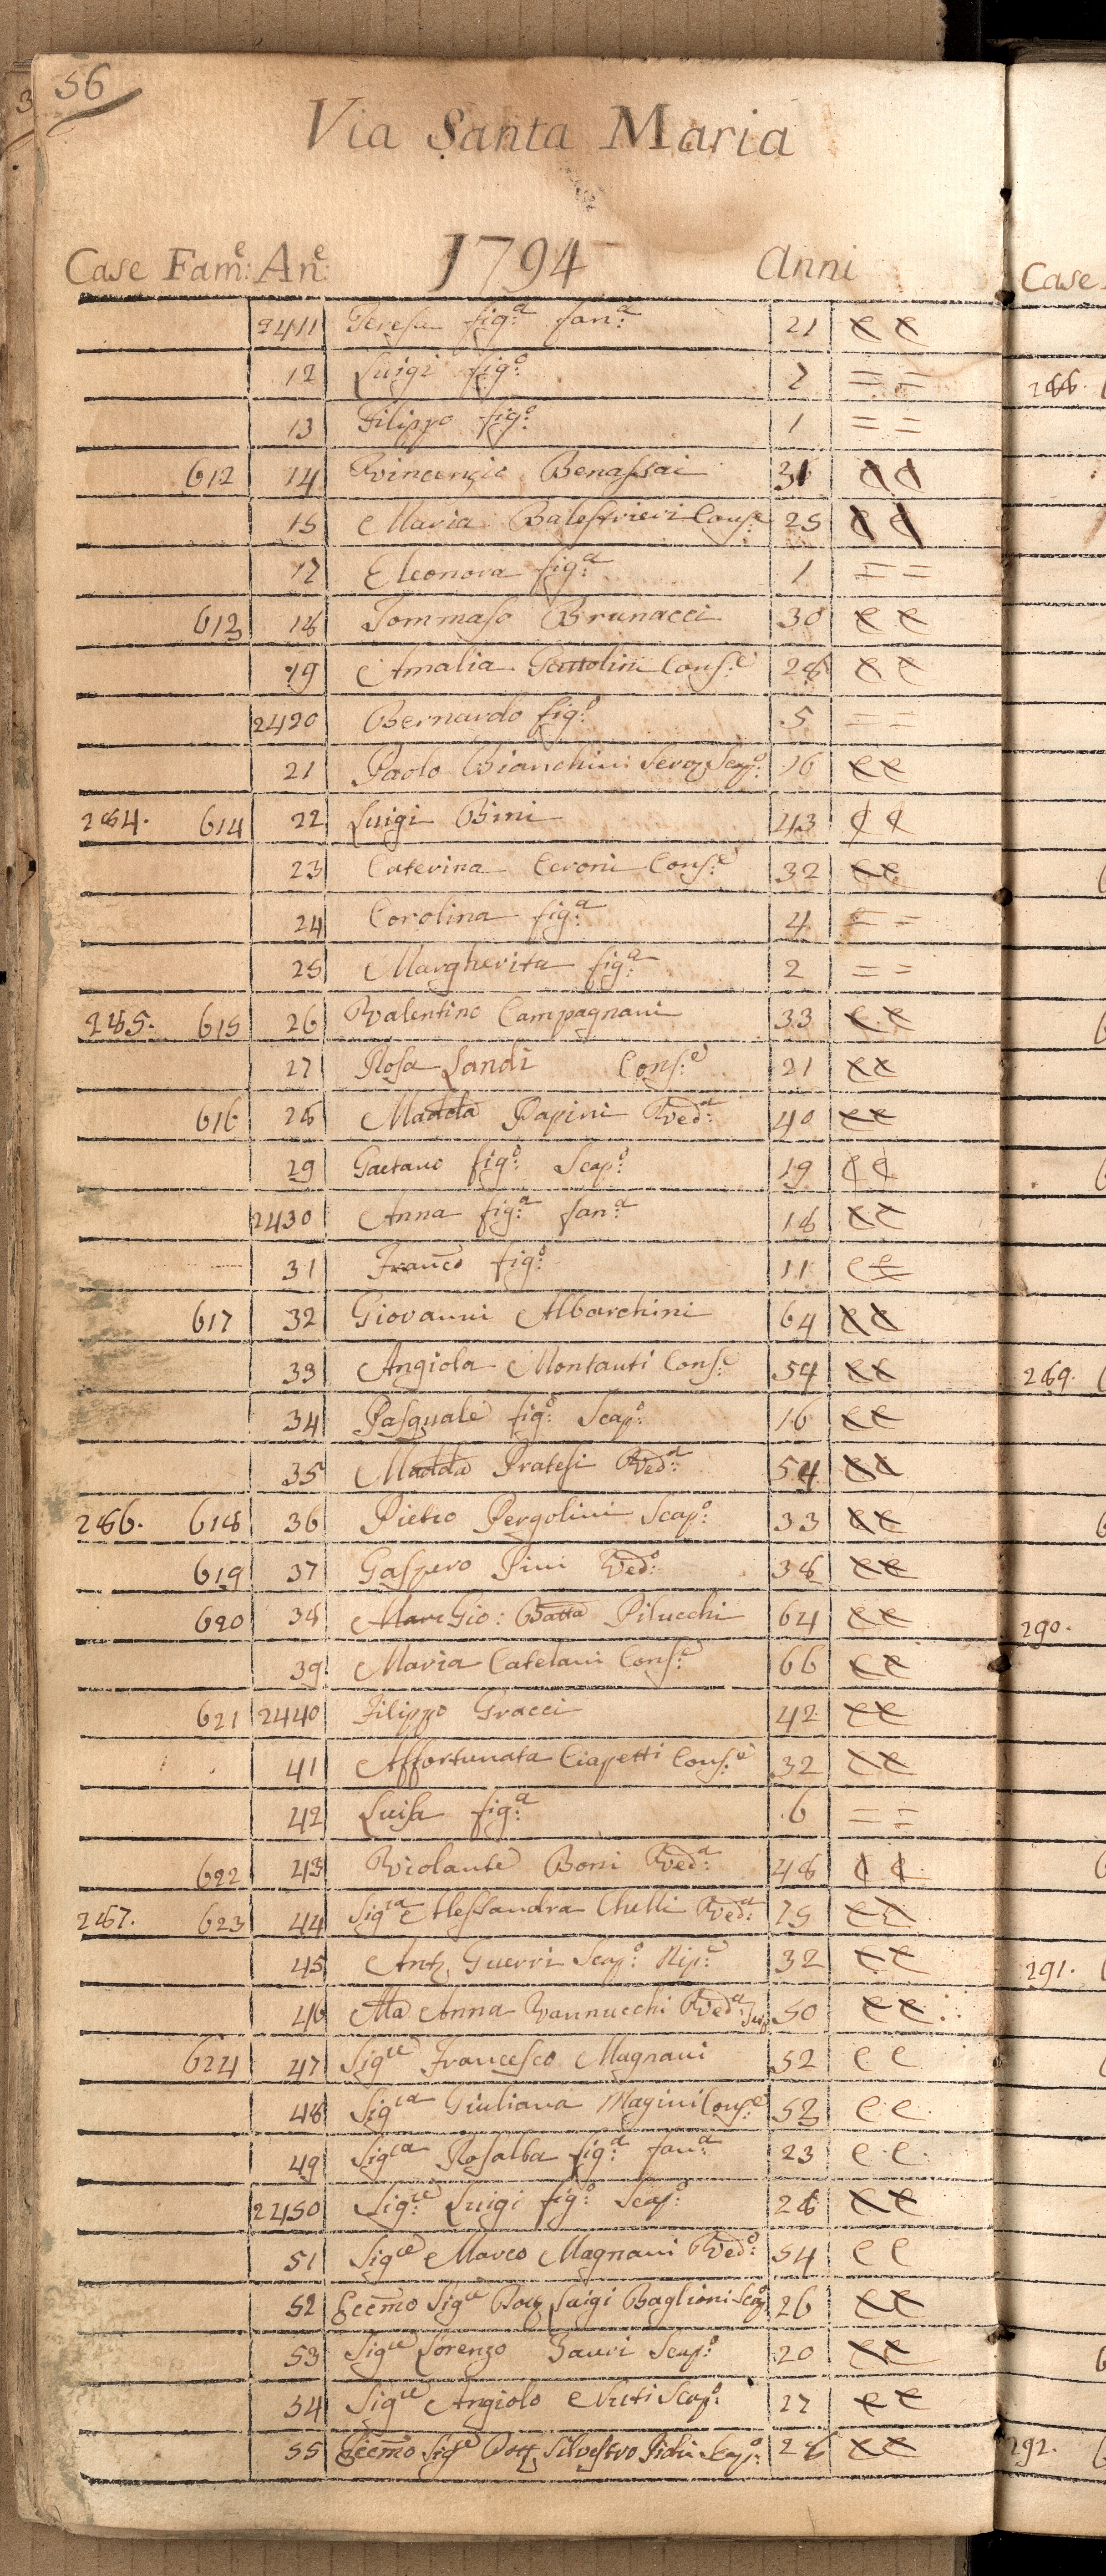 56
Via Santa Maria
Case Fam:e An:e 1794 Anni
2411 Teresa fig:a fan:a 21
12 Luigi fig:o 7 = =
13 Filippo fig:o 1 = =
612 14 Vincenzio Benassai 31
15 Maria Balestrieri Cons:e 25
17 Eleonora fig:a 1 = =
613 18 Tommaso Brunacci 30
19 Amalia Cons:e 28
2420 Bernardo fig:o 5 = =
21 Paolo Bianchini Serv Scap:o 16
284. 614 22 Luigi Bini 43
23 Caterina Ceroni Cons:e 32
24 Corolina fig:a 4 = =
25 Margherita fig:a 2 = =
285. 615 26 Valentino Campagnani 33
27 Rosa Landi Cons:e 21
616 28 Madda Papini Ved:a 40
29 Gaetano fig:o Scap:o 19
2430 Anna fig:a fan:a 18
31 Franco fig:o 11
617 32 Giovanni Albarchini 64
33 Angiola Montauti Cons:e 54
34 Pasquale fig:o Scap:o 16
35 Madda Pratesi Ved:a 54
286. 618 36 Pietro Pergolini Scap:o 33
619 37 Gaspero Pini Ved:o 38
620 38 Gio: Batta Pilucchi 64
39 Maria Catelani Cons:e 66
621 2440 Filippo Gracci 42
41 Affortunata Ciapetti Cons:e 32
42 Luisa fig:a 6 = =
622 43 Violante Boni Ved:a 48
287. 623 44 Sigra Alessandra Chelli Ved:a 75
45 Ant Guerri Scap:o Nip:e 32
46 Ma Anna Vannucchi Ved:a 50
624 47 Sigre Francesco Magnani 52
48 Sigra Giuliana Magini Cons:e 52
49 Sigra Rosalba fig:a fan:a 23
2450 Sigre Luigi fig:o Scap:o 28
51 Sigre Marco Magnani Ved:o 54
52 Eccmo Sigre Dott Luigi Baglioni Scap:o 26
53 Sigre Lorenzo Scap:o 20
54 Sigre Angiolo Scap:o 27
55 Eccmo Sigre Dott Silvestro Scap:o 28
Case
286.
289.
290.
291.
292.